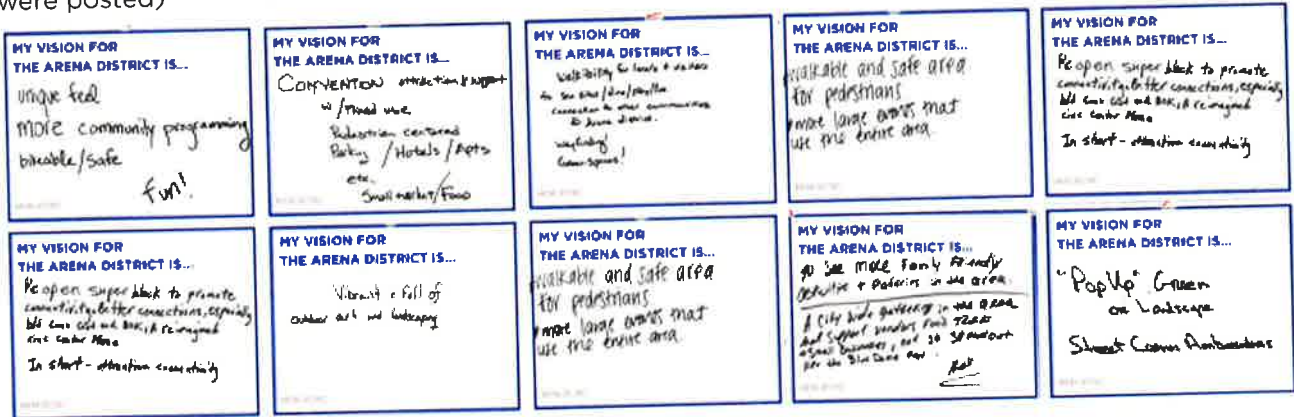 were posted)
MY VISION FOR
THE ARENA DISTRICT IS...
unique feel
more community programming
bikeable/safe
fun!
MY VISION FOR
THE ARENA DISTRICT IS...
CONVENTION attraction & support
w/ Mixed use
Pedestrian centered
Parking / Hotels / Apts
etc.
Small market/Food
MY VISION FOR
THE ARENA DISTRICT IS...
Walkability for locals & visitors
to see sites/dine/
Connection to other communities
to Arena district.
wayfinding!
Green Spaces!
MY VISION FOR
THE ARENA DISTRICT IS...
walkable and safe area
for pedestrians
more large events that
use the entire area
MY VISION FOR
THE ARENA DISTRICT IS...
Re open super block to promote
connectivity, better connections, especially
and a reimagined
civic center
In short - attraction connectivity
MY VISION FOR
THE ARENA DISTRICT IS...
Re open super block to promote
connectivity, better connections, especially
and a reimagined
civic center
In short - attraction connectivity
MY VISION FOR
THE ARENA DISTRICT IS...
Vibrant & full of
outdoor art and landscaping
MY VISION FOR
THE ARENA DISTRICT IS...
walkable and safe area
for pedestrians
more large events that
use the entire area
MY VISION FOR
THE ARENA DISTRICT IS...
to see more Family Friendly
activities + in the area.
A City wide gathering in the area
that support vendors Food Trucks
small businesses, and
MY VISION FOR
THE ARENA DISTRICT IS...
"PopUp" Green
on Landscape
Street Comm Ambassadors